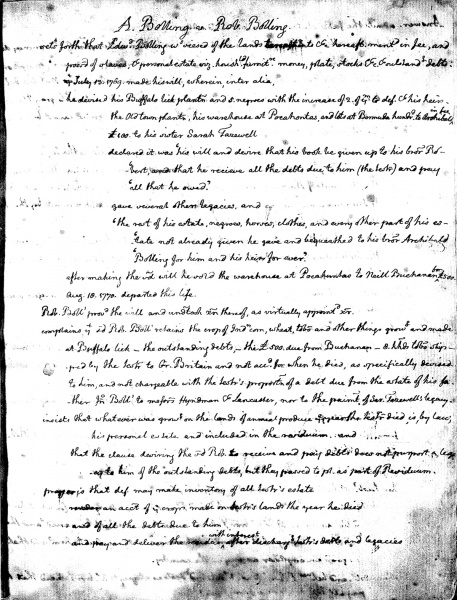 A. Bolling v. Rob. Bolling.
sets forth that Edwd. Bolling was seised of the lands & hereafter ment. in fee, and
possd. of slaves, & personal estate viz. househd. furnitre. money, plate, stocks &c & outstandg. debts:
July 13. 1769. made his will, wherein, inter alia,
he devised his Buffalo lick plantn. and 5. negroes with the increase of 2. of ym. to def. & his heirs
the Old town plantn., his warehouse at Pocahontas, and lots at Bermuda hundd. to Archibald in fee
£100. to his sister Sarah Tazewell
declared it was his will and desire that his book be given up to his bror. Ro-
bert, and that he recieve all the debts due to him (the testr.) and pay
'all that he owed.'
gave several other legacies, and
'the rest of his estate, negroes, horses, clothes, and every other part of his es-
'tate not already given he gave and bequeathed to his bror. Archibald
'Bolling for him and his heirs for ever.'
after making the sd. will he sold the warehouse at Pocahontas to Neill Buchanan for £500.
Aug. 18. 1770. departed this life.
Rob. Boll. provd. the will and undtook exn. thereof, as virtually appointd. exr.
complains yt. sd. Rob. Boll. retains the crop of Ind. corn, wheat, tobo. and other things growg. and made
at Buffalo lick — the outstanding debts, — the £500. due from Buchanan — 8. hhds tobo. ship-
ped by the testr. to Gr. Britain and not accd. for when he died, as specifically devised
to him, and not chargeable with the testr's. proportn. of a debt due from the estate of his fa-
ther Jn. Boll. to messrs. Hyndman & Lancaster, nor to the paimt. of Sar. Tazewell's legacy.
insists that whatever was growg. on the lands of annual produce when the testr. died is, by law,
his personal estate and included in the residuum. and
that the clause desiring the sd. Rob. to receive and pay debts does not purport a legacy
to him of the outstanding debts, but they passed to pl. as part of Residuum.
prayer is that def. may make inventory of all testr's estate
render an acct. of ye. crops made on testr's lands the year he died
and of all the debts due to him
and pay and deliver the residue, with interest after dischargg. testr's debts and legacies